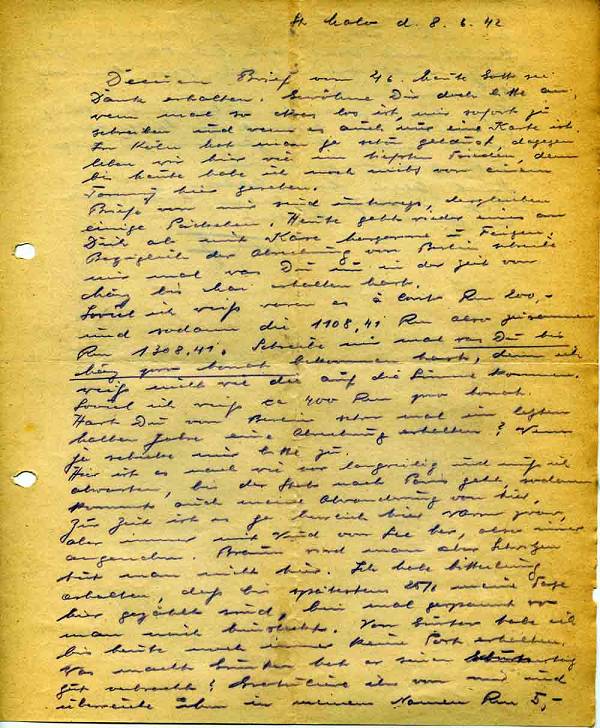 St. Malo d. 8. 6. 42
Deinen Brief vom 4.6. heute Gott sei
Dank erhalten. Gewöhne Dir doch bitte an,
wenn mal so etwas los ist, mir sofort zu
schreiben und wenn es auch nur eine Karte ist.
In Köln hat man ja sehr getobt, dagegen
leben wir hier wie im tiefsten Frieden, denn
bis heute habe ich noch nichts von einem
Tommy hier gesehen.
Briefe von mir sind unterwegs, desgleichen
einige Päckchen. Heute geht wieder eins an
Dich ab mit Käse u Feigen.
Bezüglich der Abrechnung von Berlin schreibe
mir mal was Du nun in der Zeit von
März bis Mai erhalten hast.
Soviel ich weiß waren es à Conto Rm 200,-
und sodann die 1108,41 Rm also zusammen
Rm 1308,41. Schreibe mir mal was Du bis
März pro Monat bekommen hast, denn ich
weiß nicht wie die auf die Summe kommen.
Soviel ich weiß ca 400 Rm pro Monat.
Hast Du von Berlin schon mal im letzten
halben Jahre eine Abrechnung erhalten? Wenn
ja schicke mir bitte zu.
Hier ist es nach wie vor langweilig und muß ich
abwarten, bis der Stab nach Paris geht, sodann
kommt auch meine Abwanderung von hier.
Zur Zeit ist es ja hier warm,
aber immer mit Wind von See her, also immer
angenehm. Braun wird man aber schwitzen
tut man nicht hier. Ich habe Mitteilung
erhalten, daß bis spätestens 25/6 meine Tage
hier gezählt sind, bin mal gespannt wo
man mich hinschickt. Von habe ich
bis heute noch immer keine Post erhalten.
Was macht hat er seinen
gut verbracht? Gratuliere ihm von mir und
überreiche ihm in meinem Namen Rm 5,-